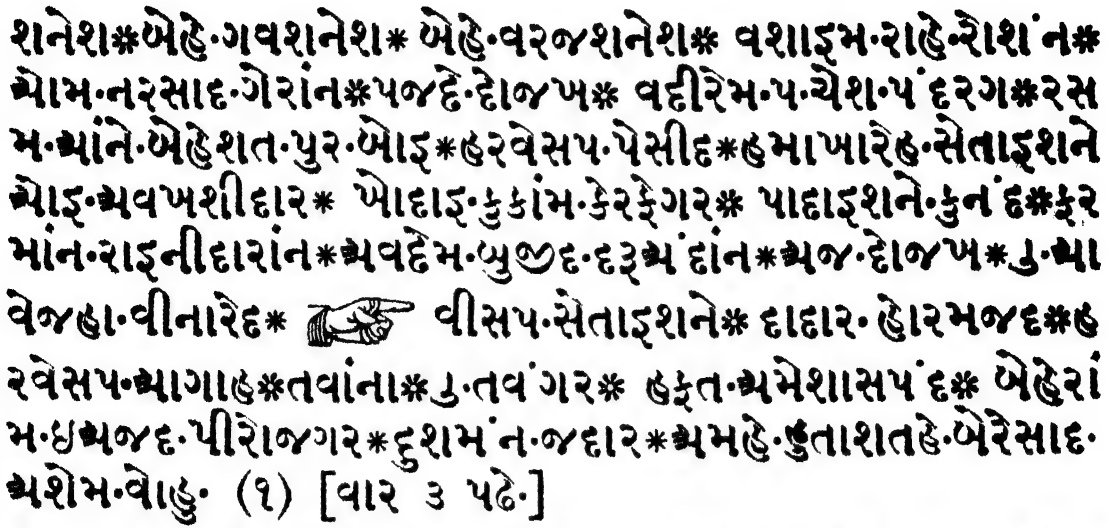 શનેશ*બેહે·ગવશનેશ* બેહે·વરજશનેશ* વશાઇમ·રાહે·રોશંન*
આમ·નરસાદ·ગેરાંન*પજદે·દોજખ* વદીરેમ·પ·ચેશ·પંદરગ*રસ
મ·આંને·બેહેશત·પુર·બોઇ*હરવેસપ·પેસીદ*હમાખારેહ·સેતાઇશને
ઓઇ·અવખશીદાર* ખોદાઇ·કુકાંમ·કેરફેગર* પાદાઇશને·કુનંદ*ફર
માંન·રાઇનીદારાંન*અવદેમ·બુજીદ·દરૂઅંદાંન*અજ·દોજખ*ઽુ·આ
વેજહા·વીનારેદ* ☞ વીસપ·સેતાઇશને* દાદાર·હોરમજદ*હ
રવેસપ·આગાહ*તવાંના*ઽુ·તવંગર* હફત·અમેશાસપંદ* બેહેરાં
મ·ઇઅજદ·પીરોજગર*દુશમંન·જદાર*અમહે·હુતાશતહે·બેરેસાદ·
અશેમ·વોહુ· (૧) [વાર ૩ પઢે·]